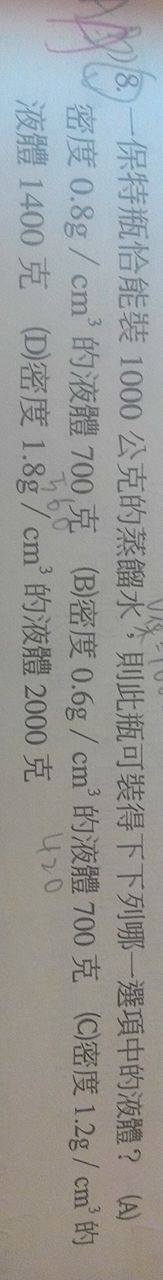 8. 一保特瓶恰能裝 1000 公克的蒸餾水，則此瓶可裝得下下列哪一選項中的液體？ (A)
密度 0.8g / cm³ 的液體 700 克 (B)密度 0.6g / cm³ 的液體 700 克 (C)密度 1.2g / cm³ 的
液體 1400 克 (D)密度 1.8g / cm³ 的液體 2000 克
560
420